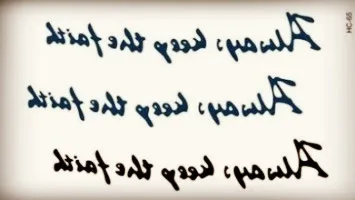 Always keep the faith
Always keep the faith
Always keep the faith
HC-65